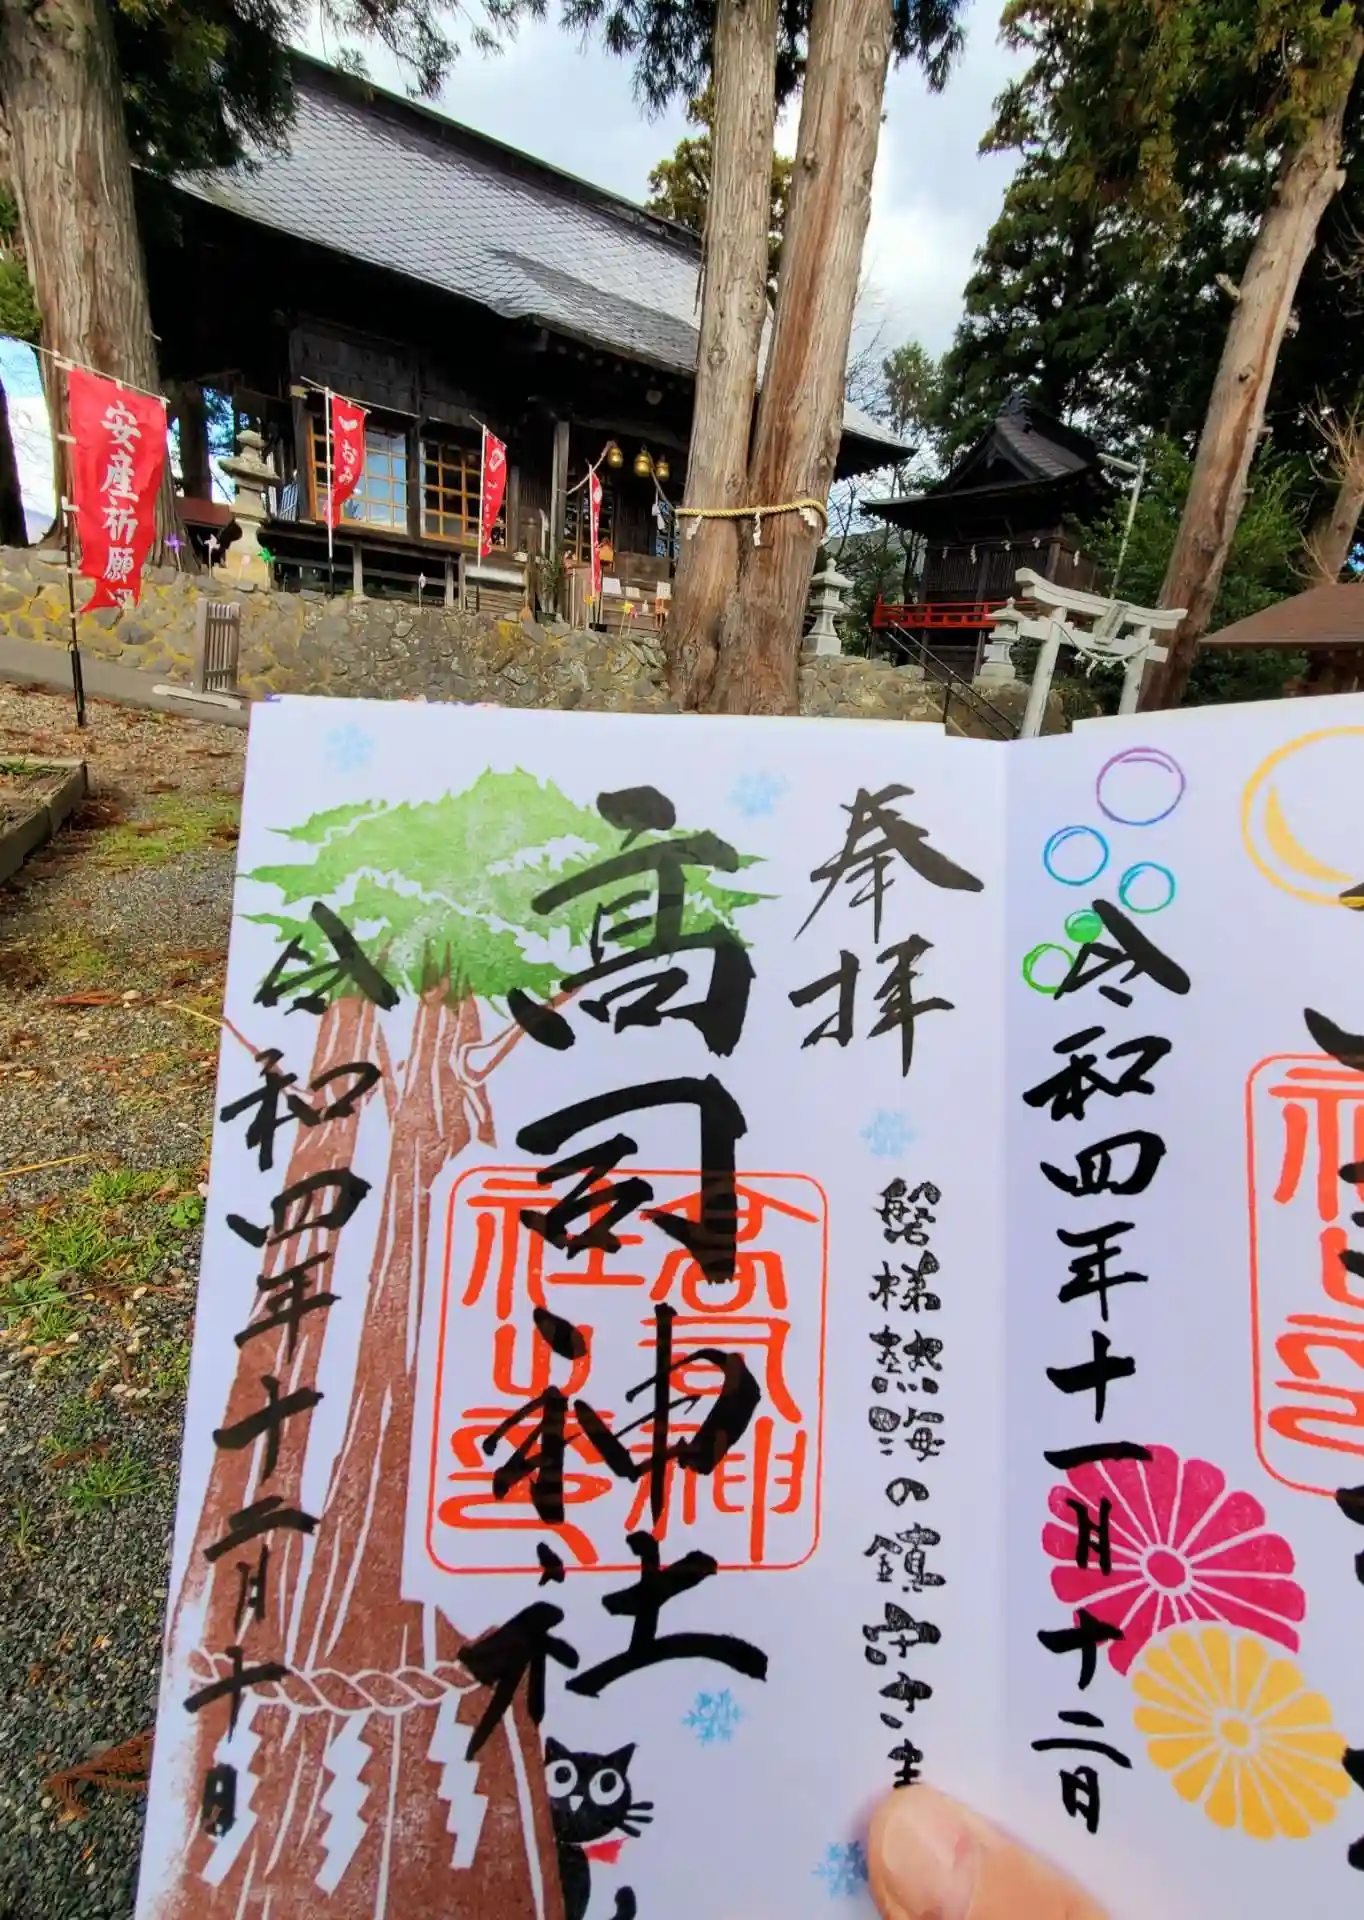 安産祈願
奉拝
磐梯熱海の鎮守さま
高司神社
高司神
社之印
令和四年十二月十日
令和四年十一月十二日